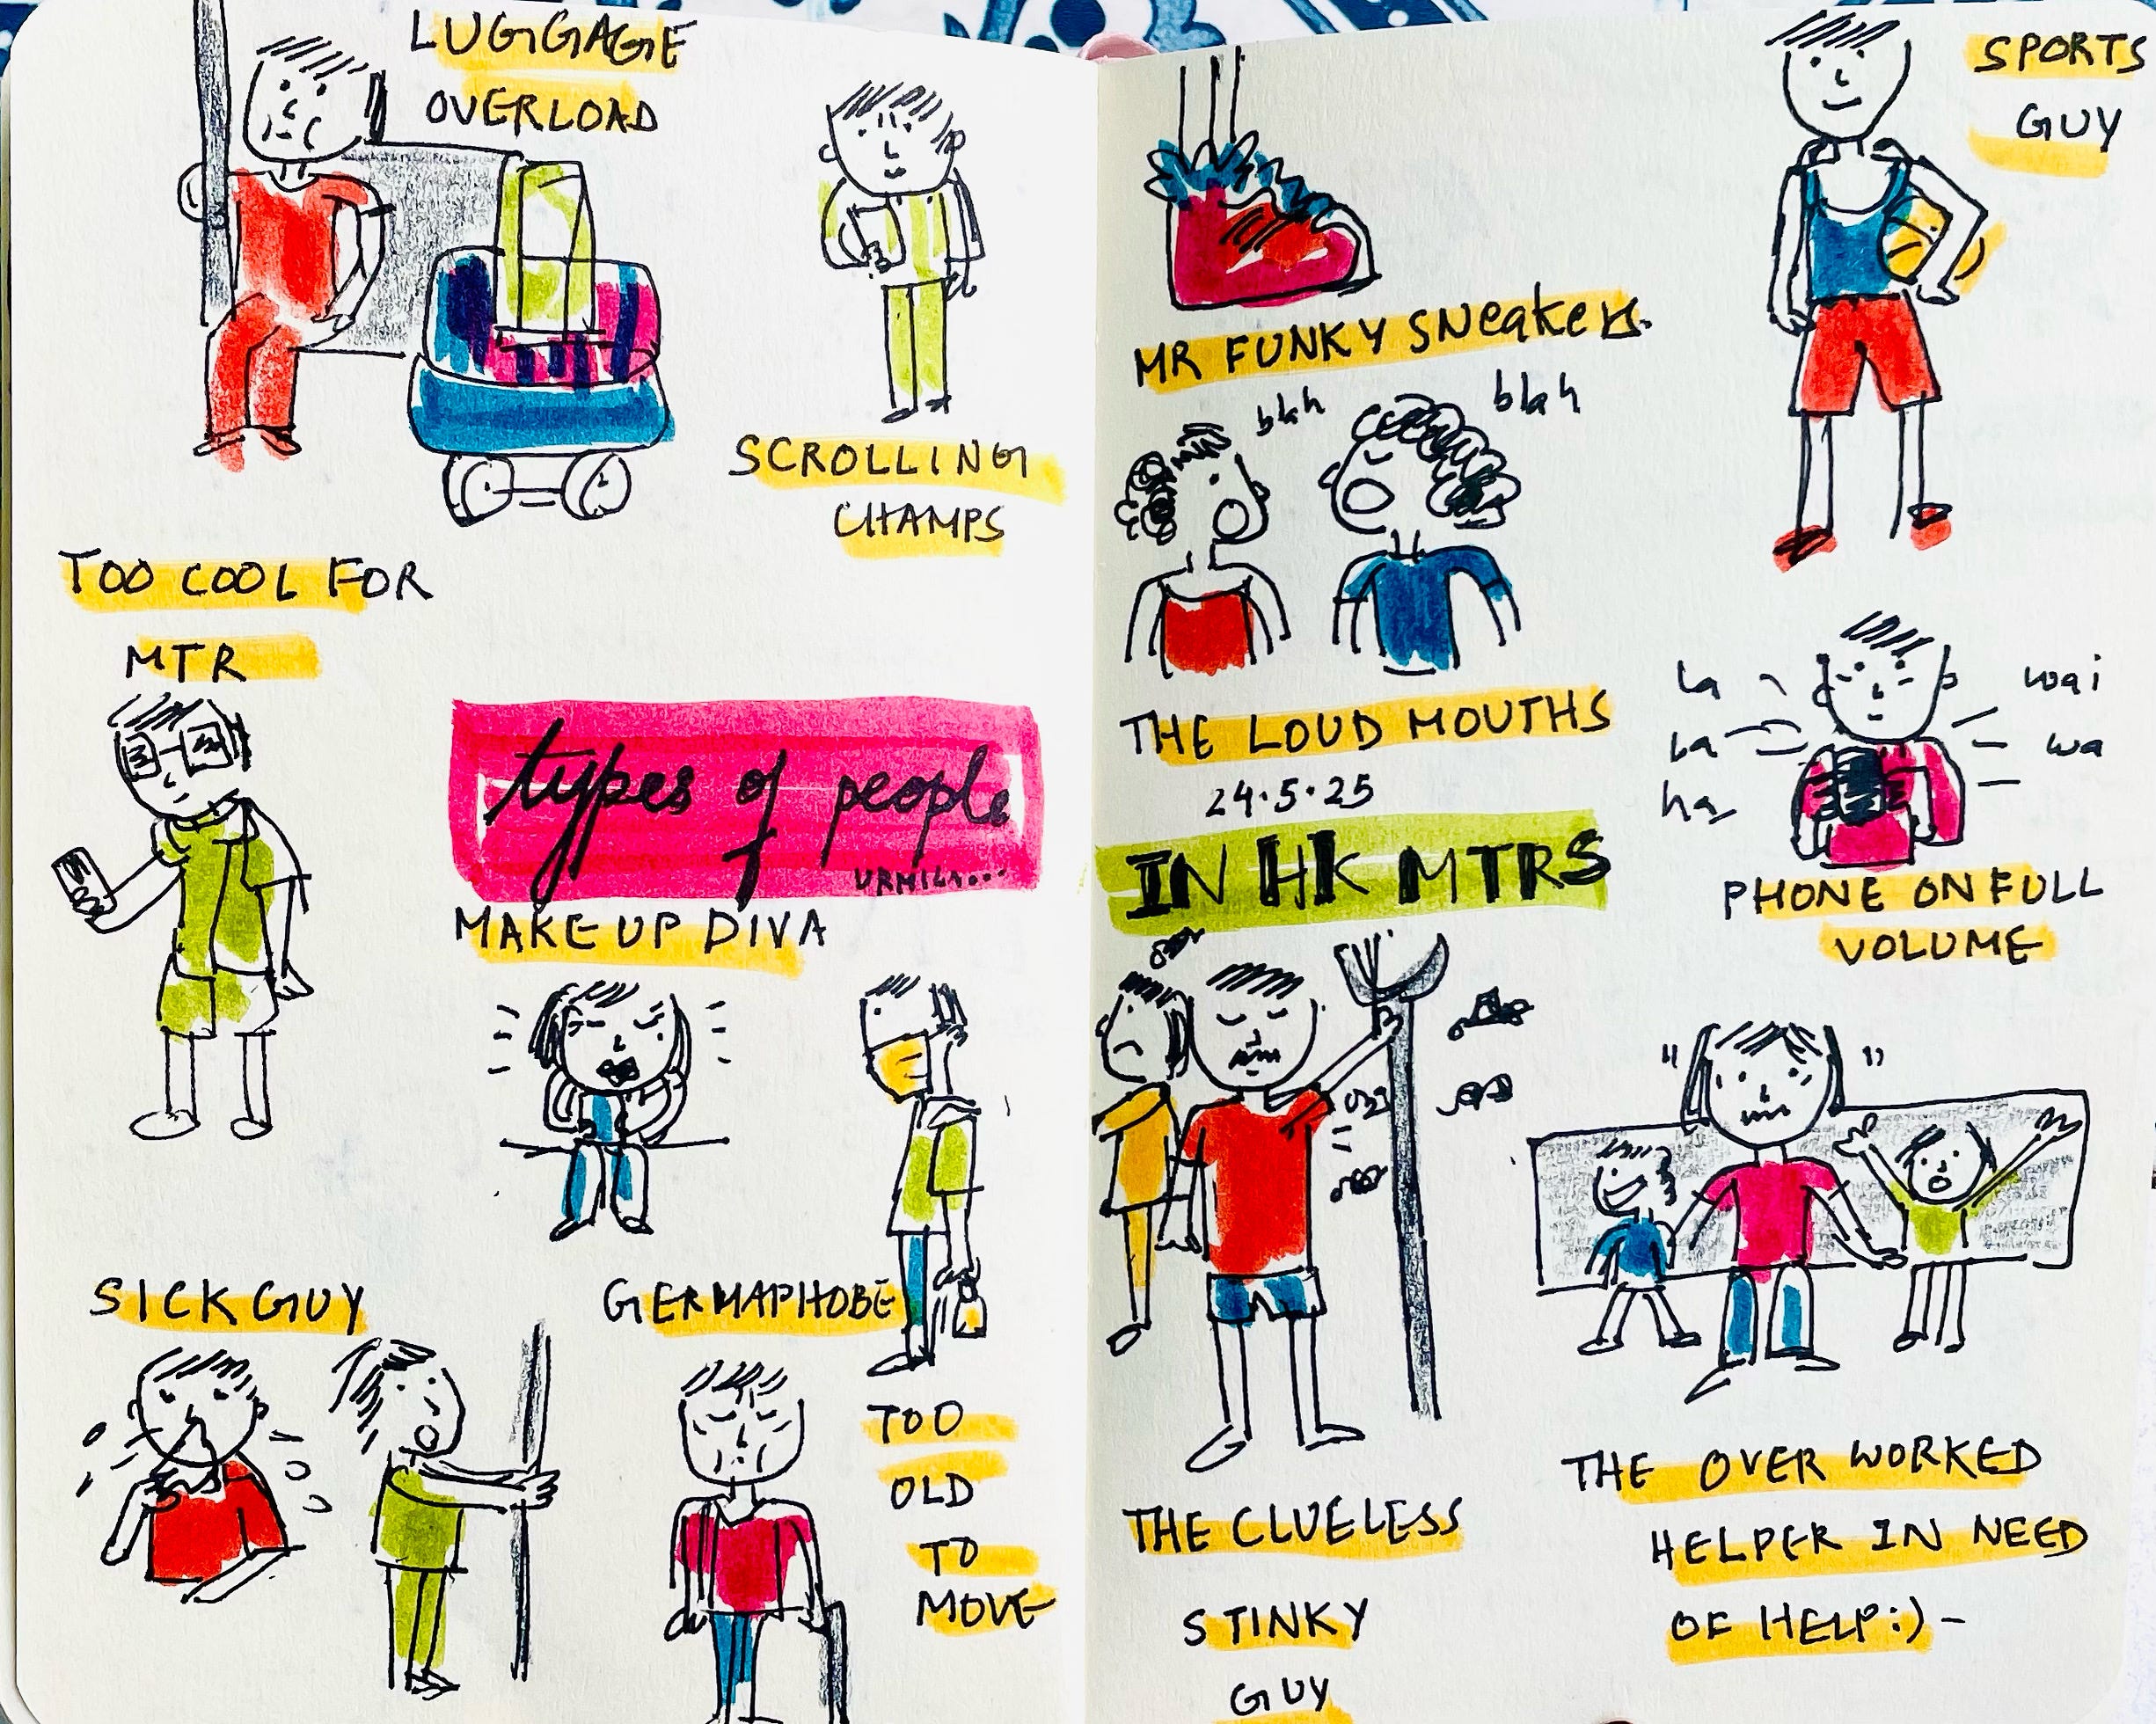 LUGGAGE
OVERLOAD
SCROLLING
CHAMPS
TOO COOL FOR
MTR
types of people
URMILA...
MAKE UP DIVA
SICK GUY
GERMAPHOBE
TOO
OLD
TO
MOVE
SPORTS
GUY
MR FUNKY SNeakers.
blah
blah
THE LOUD MOUTHS
24.5.25
IN HK MTRS
La
La
ha
wai
wa
PHONE ON FULL
VOLUME
THE CLUELESS
STINKY
GUY
THE OVER WORKED
HELPER IN NEED
OF HELP:) -